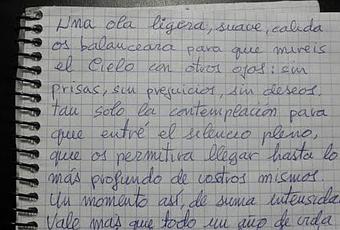 Una ola ligera, suave, calida
os balanceara para que mireis
el Cielo con otros ojos: sin
prisas, sin prejuicios, sin deseos.
tan solo la contemplación para
que entre el silencio pleno,
que os permitira llegar hasta lo
más profundo de vostros mismos.
Un momento así, de suma intensida
Vale más que todo un año de vida